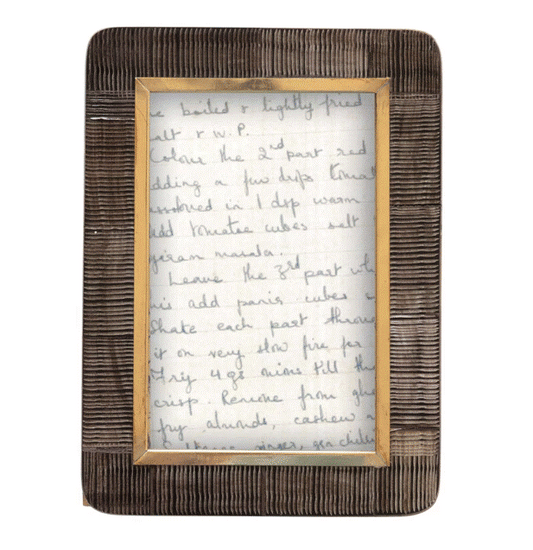 e boiled & lightly fried
alt & w.P.
Colour the 2nd part red
dding a few drps tomat
ssolved in 1 dsp warm
dd tomatoe cubes salt
garam masala.
Leave the 3rd part wh
his add panir cubes
Shake each part throug
it on very slow fire for
Fry 4 gs onions till the
crisp. Remove from ghe
fry almonds, cashew n
ginger, grn chilli